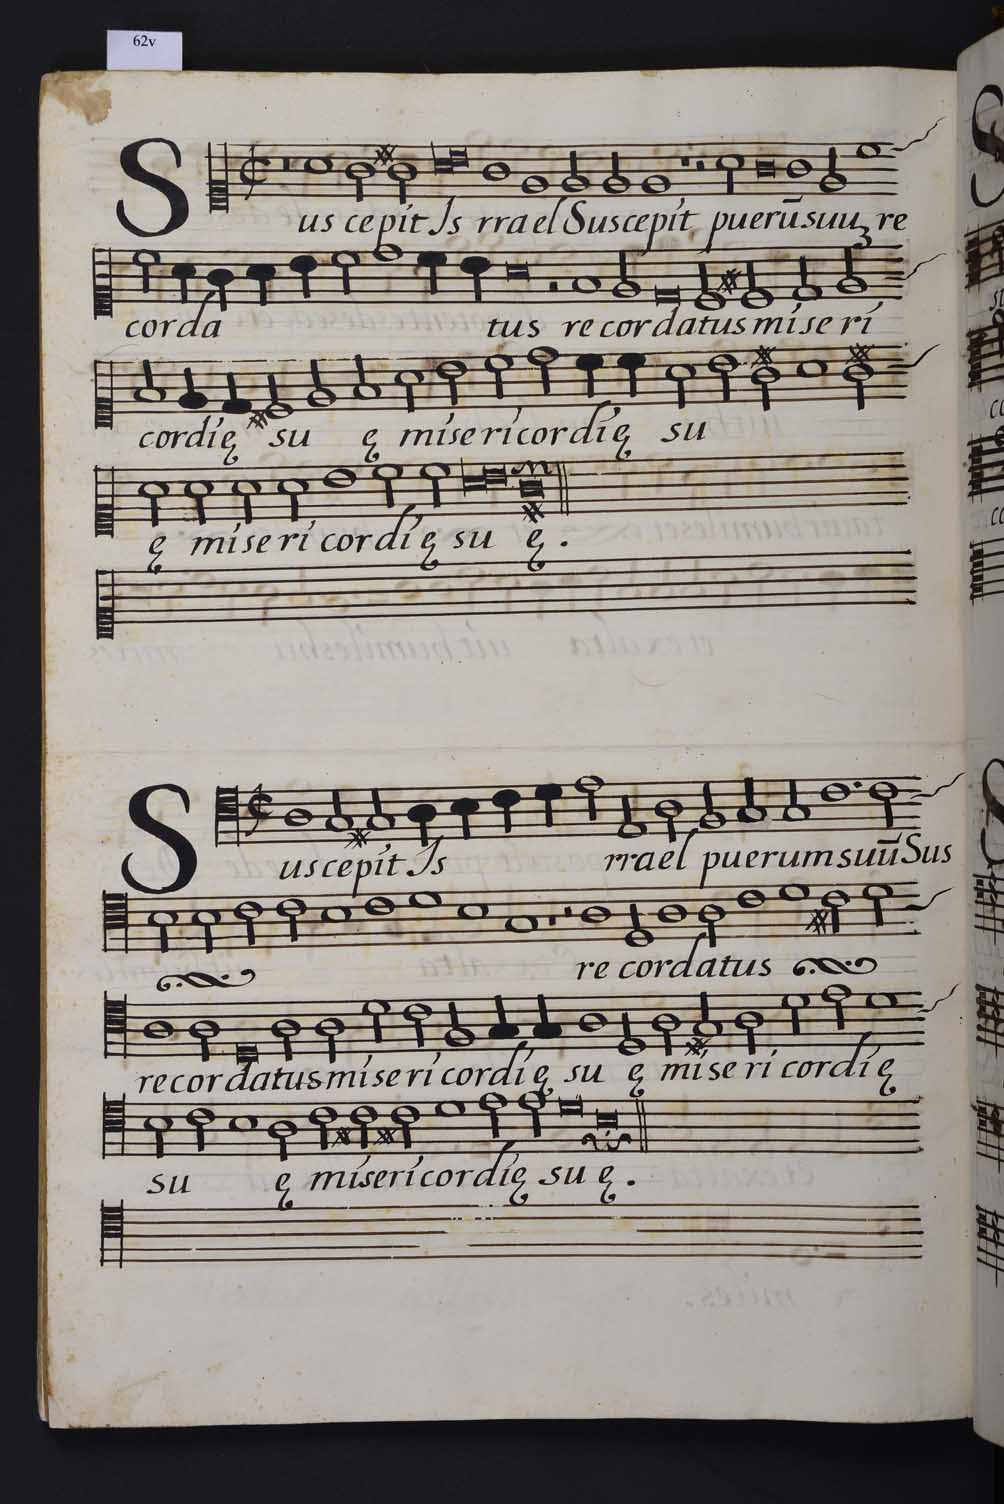 62v
Sus cepit Is rrael Suscepit puerū suuʒ re
corda tus re cordatus mise ri
cordię su ę misericordię su
ę mise ri cordię su ę .
Suscepit Is rrael puerum suū Sus
re cordatus
recordatus mise ri cordi ę su ę mi se ri cordi ę
su ę misericordię su ę .